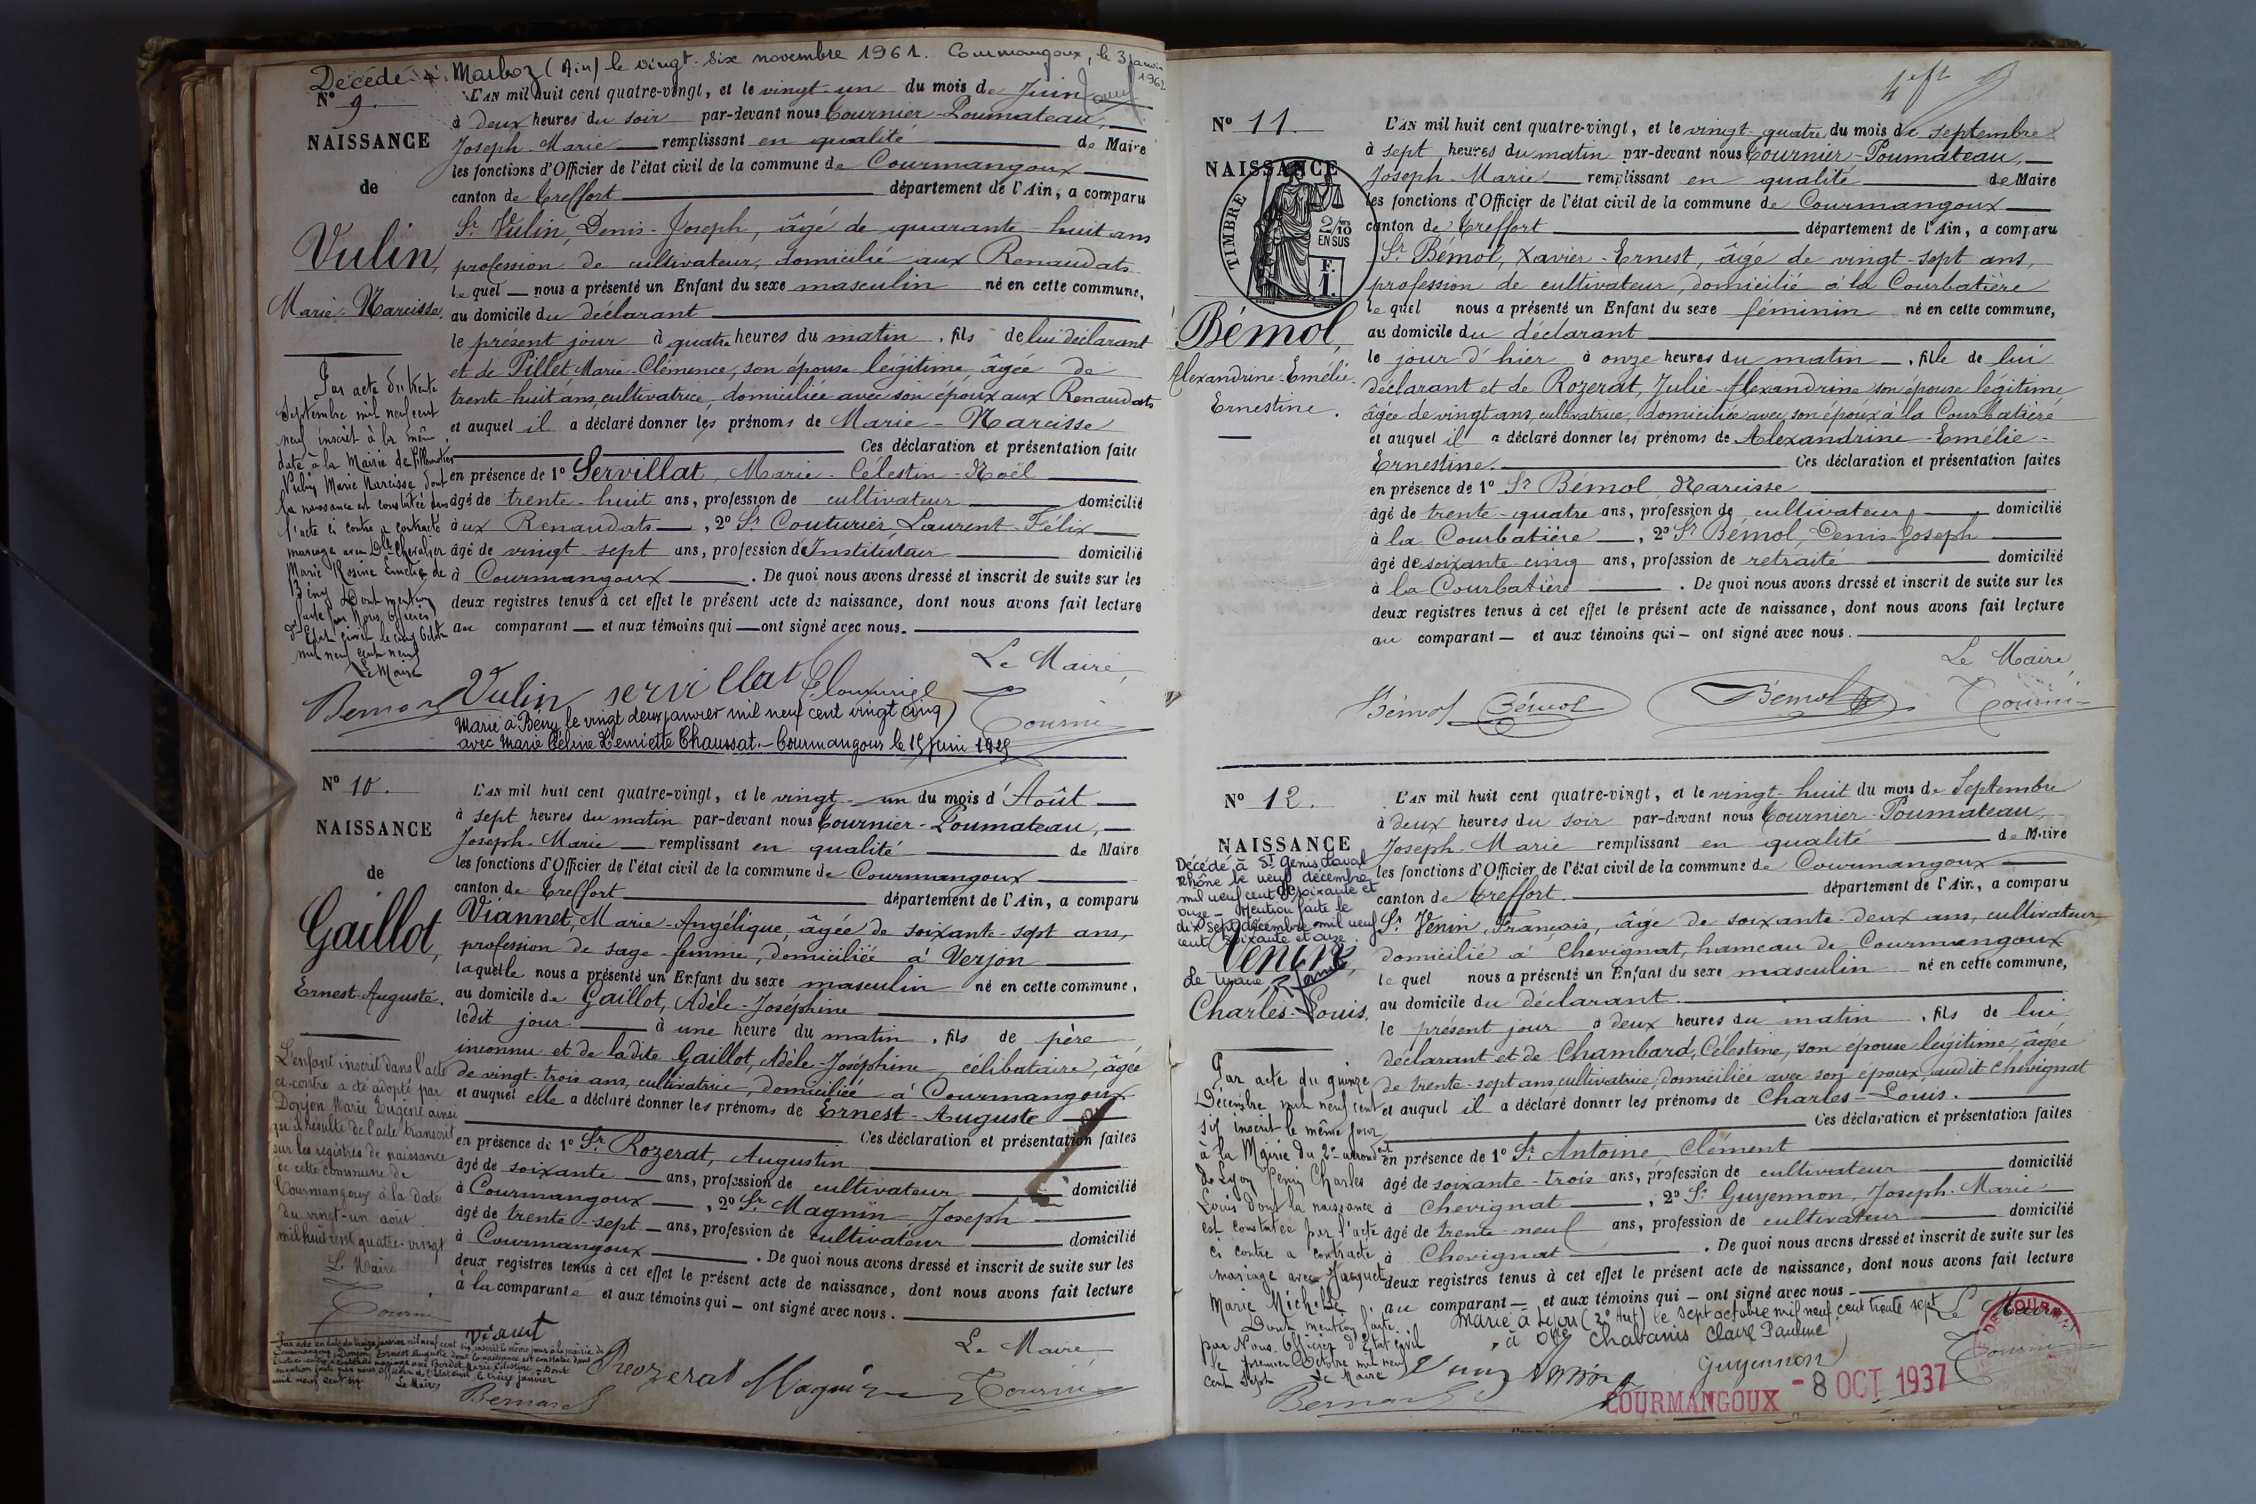 Décédé à Marboz (Ain) le vingt-six novembre 1961. Courmangoux, le 3 janvier
1962
N° 9.
NAISSANCE
de
Vulin,
Marie-Narcisse.
L'AN mil huit cent quatre-vingt, et le vingt-un du mois de Juin
à deux heures du soir par-devant nous Tournier-Poumateau,
Joseph-Marie remplissant en qualité de Maire
les fonctions d'Officier de l'état civil de la commune de Courmangoux
canton de Treffort département de l'Ain, a comparu
Sr. Vulin, Denis-Joseph, âgé de quarante-huit ans
profession de cultivateur, domicilié aux Renaudats
le quel nous a présenté un Enfant du sexe masculin né en cette commune,
au domicile du déclarant
le présent jour à quatre heures du matin, fils de lui déclarant
et de Pillet Marie-Clémence, son épouse légitime âgée de
trente-huit ans, cultivatrice, domiciliée avec son époux aux Renaudats
et auquel il a déclaré donner les prénoms de Marie-Narcisse
Ces déclaration et présentation faites
en présence de 1° Servillat, Marie-Célestin-Noël
âgé de trente-huit ans, profession de cultivateur domicilié
aux Renaudats, 2° Sr. Couturier Laurent-Félix
âgé de vingt-sept ans, profession d'Instituteur domicilié
à Courmangoux. De quoi nous avons dressé et inscrit de suite sur les
deux registres tenus à cet effet le présent acte de naissance, dont nous avons fait lecture
au comparant et aux témoins qui ont signé avec nous.
Par acte du trente
Septembre mil neuf cent
neuf inscrit à la même
date à la Mairie de Villemotier
Vulin Marie Narcisse dont
la naissance est constatée dans
l'acte ci contre a contracté
mariage avec Dlle Chevalier
Marie Rosine Emelie de
Bény Dont mention
faite par Nous, Officier
d'Etat Civil le cinq Octobre
mil neuf cent neuf
Le Maire
Le Maire,
Bernard Vulin servillat
Marié à Bény le vingt deux janvier mil neuf cent vingt cinq
avec Marie Céline Henriette Chaussat.- Courmangoux le 15 juin 1925
N° 10.
NAISSANCE
de
Gaillot,
Ernest-Auguste.
L'AN mil huit cent quatre-vingt, et le vingt-un du mois d'Août
à sept heures du matin par-devant nous Tournier-Poumateau,
Joseph-Marie remplissant en qualité de Maire
les fonctions d'Officier de l'état civil de la commune de Courmangoux
canton de Treffort département de l'Ain, a comparu
Viannet, Marie-Angélique, âgée de soixante-sept ans,
profession de sage-femme, domiciliée à Verjon
laquelle nous a présenté un Enfant du sexe masculin né en cette commune,
au domicile de Gaillot, Adèle-Joséphine
ledit jour à une heure du matin, fils de père
inconnu et de ladite Gaillot, Adèle-Joséphine, célibataire, âgée
de vingt-trois ans, cultivatrice, domiciliée à Courmangoux
et auquel elle a déclaré donner les prénoms de Ernest-Auguste
Ces déclaration et présentation faites
en présence de 1° Sr. Rozerat, Augustin
âgé de soixante ans, profession de cultivateur domicilié
à Courmangoux, 2° Sr. Magnin Joseph
âgé de trente-sept ans, profession de cultivateur domicilié
à Courmangoux. De quoi nous avons dressé et inscrit de suite sur les
deux registres tenus à cet effet le présent acte de naissance, dont nous avons fait lecture
à la comparante et aux témoins qui ont signé avec nous.
L'enfant inscrit dans l'acte
ci-contre a été adopté par
Donjon Marie Eugène ainsi
qu'il résulte de l'acte transcrit
sur les registres de naissance
de cette commune de
Courmangoux à la date
du vingt-un août
mil huit cent quatre-vingt
Le Maire
Le Maire
Le Maire
Rozerat Magnin Tournier
Bernard
4 ft
N° 11.
NAISSANCE
TIMBRE
2/10
EN SUS
F.
1
Bémol,
Alexandrine-Emélie-
Ernestine.
L'AN mil huit cent quatre-vingt, et le vingt-quatre du mois de septembre
à sept heures du matin par-devant nous Tournier-Poumateau,
Joseph-Marie remplissant en qualité de Maire
les fonctions d'Officier de l'état civil de la commune de Courmangoux
canton de Treffort département de l'Ain, a comparu
Sr. Bémol, Xavier-Ernest, âgé de vingt-sept ans,
profession de cultivateur, domicilié à la Courbatière
le quel nous a présenté un Enfant du sexe féminin né en cette commune,
au domicile du déclarant
le jour d'hier à onze heures du matin, fille de lui
déclarant et de Rozerat, Julie-Alexandrine son épouse légitime
âgée de vingt ans, cultivatrice, domiciliée avec son époux à la Courbatière
et auquel il a déclaré donner les prénoms de Alexandrine-Emélie-
Ernestine. Ces déclaration et présentation faites
en présence de 1° Sr. Bémol Narcisse
âgé de trente-quatre ans, profession de cultivateur domicilié
à la Courbatière, 2° Sr. Bémol, Denis-Joseph
âgé de soixante-cinq ans, profession de retraité domicilié
à la Courbatière. De quoi nous avons dressé et inscrit de suite sur les
deux registres tenus à cet effet le présent acte de naissance, dont nous avons fait lecture
au comparant et aux témoins qui ont signé avec nous.
Le Maire,
Bémol Bémol Bémol Tournier
N° 12.
NAISSANCE
Décédé à St Genis Laval
Rhône le neuf décembre
mil neuf cent soixante et
onze - Mention faite le
dix sept décembre mil neuf
cent soixante et onze.
Le Maire,
Venin,
Charles-Louis.
L'AN mil huit cent quatre-vingt, et le vingt-huit du mois de Septembre
à deux heures du soir par-devant nous Tournier-Poumateau,
Joseph-Marie remplissant en qualité de Maire
les fonctions d'Officier de l'état civil de la commune de Courmangoux
canton de Treffort. département de l'Ain, a comparu
Sr. Venin, François, âgé de soixante-deux ans, cultivateur
domicilié à Chevignat, hameau de Courmangoux
le quel nous a présenté un Enfant du sexe masculin né en cette commune,
au domicile du déclarant.
le présent jour à deux heures du matin, fils de lui
déclarant et de Chambard, Célestine, son épouse légitime, âgée
de trente-sept ans cultivatrice, domiciliée avec son époux, audit Chevignat
et auquel il a déclaré donner les prénoms de Charles-Louis.
Ces déclaration et présentation faites
en présence de 1° Sr. Antoine, Clément
âgé de soixante-trois ans, profession de cultivateur domicilié
à Chevignat, 2° Sr. Guyennon, Joseph-Marie
âgé de trente-neuf ans, profession de cultivateur domicilié
à Chevignat. De quoi nous avons dressé et inscrit de suite sur les
deux registres tenus à cet effet le présent acte de naissance, dont nous avons fait lecture
au comparant et aux témoins qui ont signé avec nous.
Par acte du quinze
Décembre mil neuf cent
six inscrit le même jour
à la Mairie du 2e arrondt
de Lyon Venin Charles
Louis dont la naissance
est constatée par l'acte
ci contre a contracté
mariage avec Jacquet
Marie Michelle
Dont mention faite
par Nous Officier d'Etat Civil
le premier Octobre mil neuf
cent sept Le Maire
Bernard
Marié à Lyon (2e Art) le sept octobre mil neuf cent trente sept
à Dlle Chabanis Claire Pauline
Le Maire
Guyennon
COURMANGOUX - 8 OCT 1937